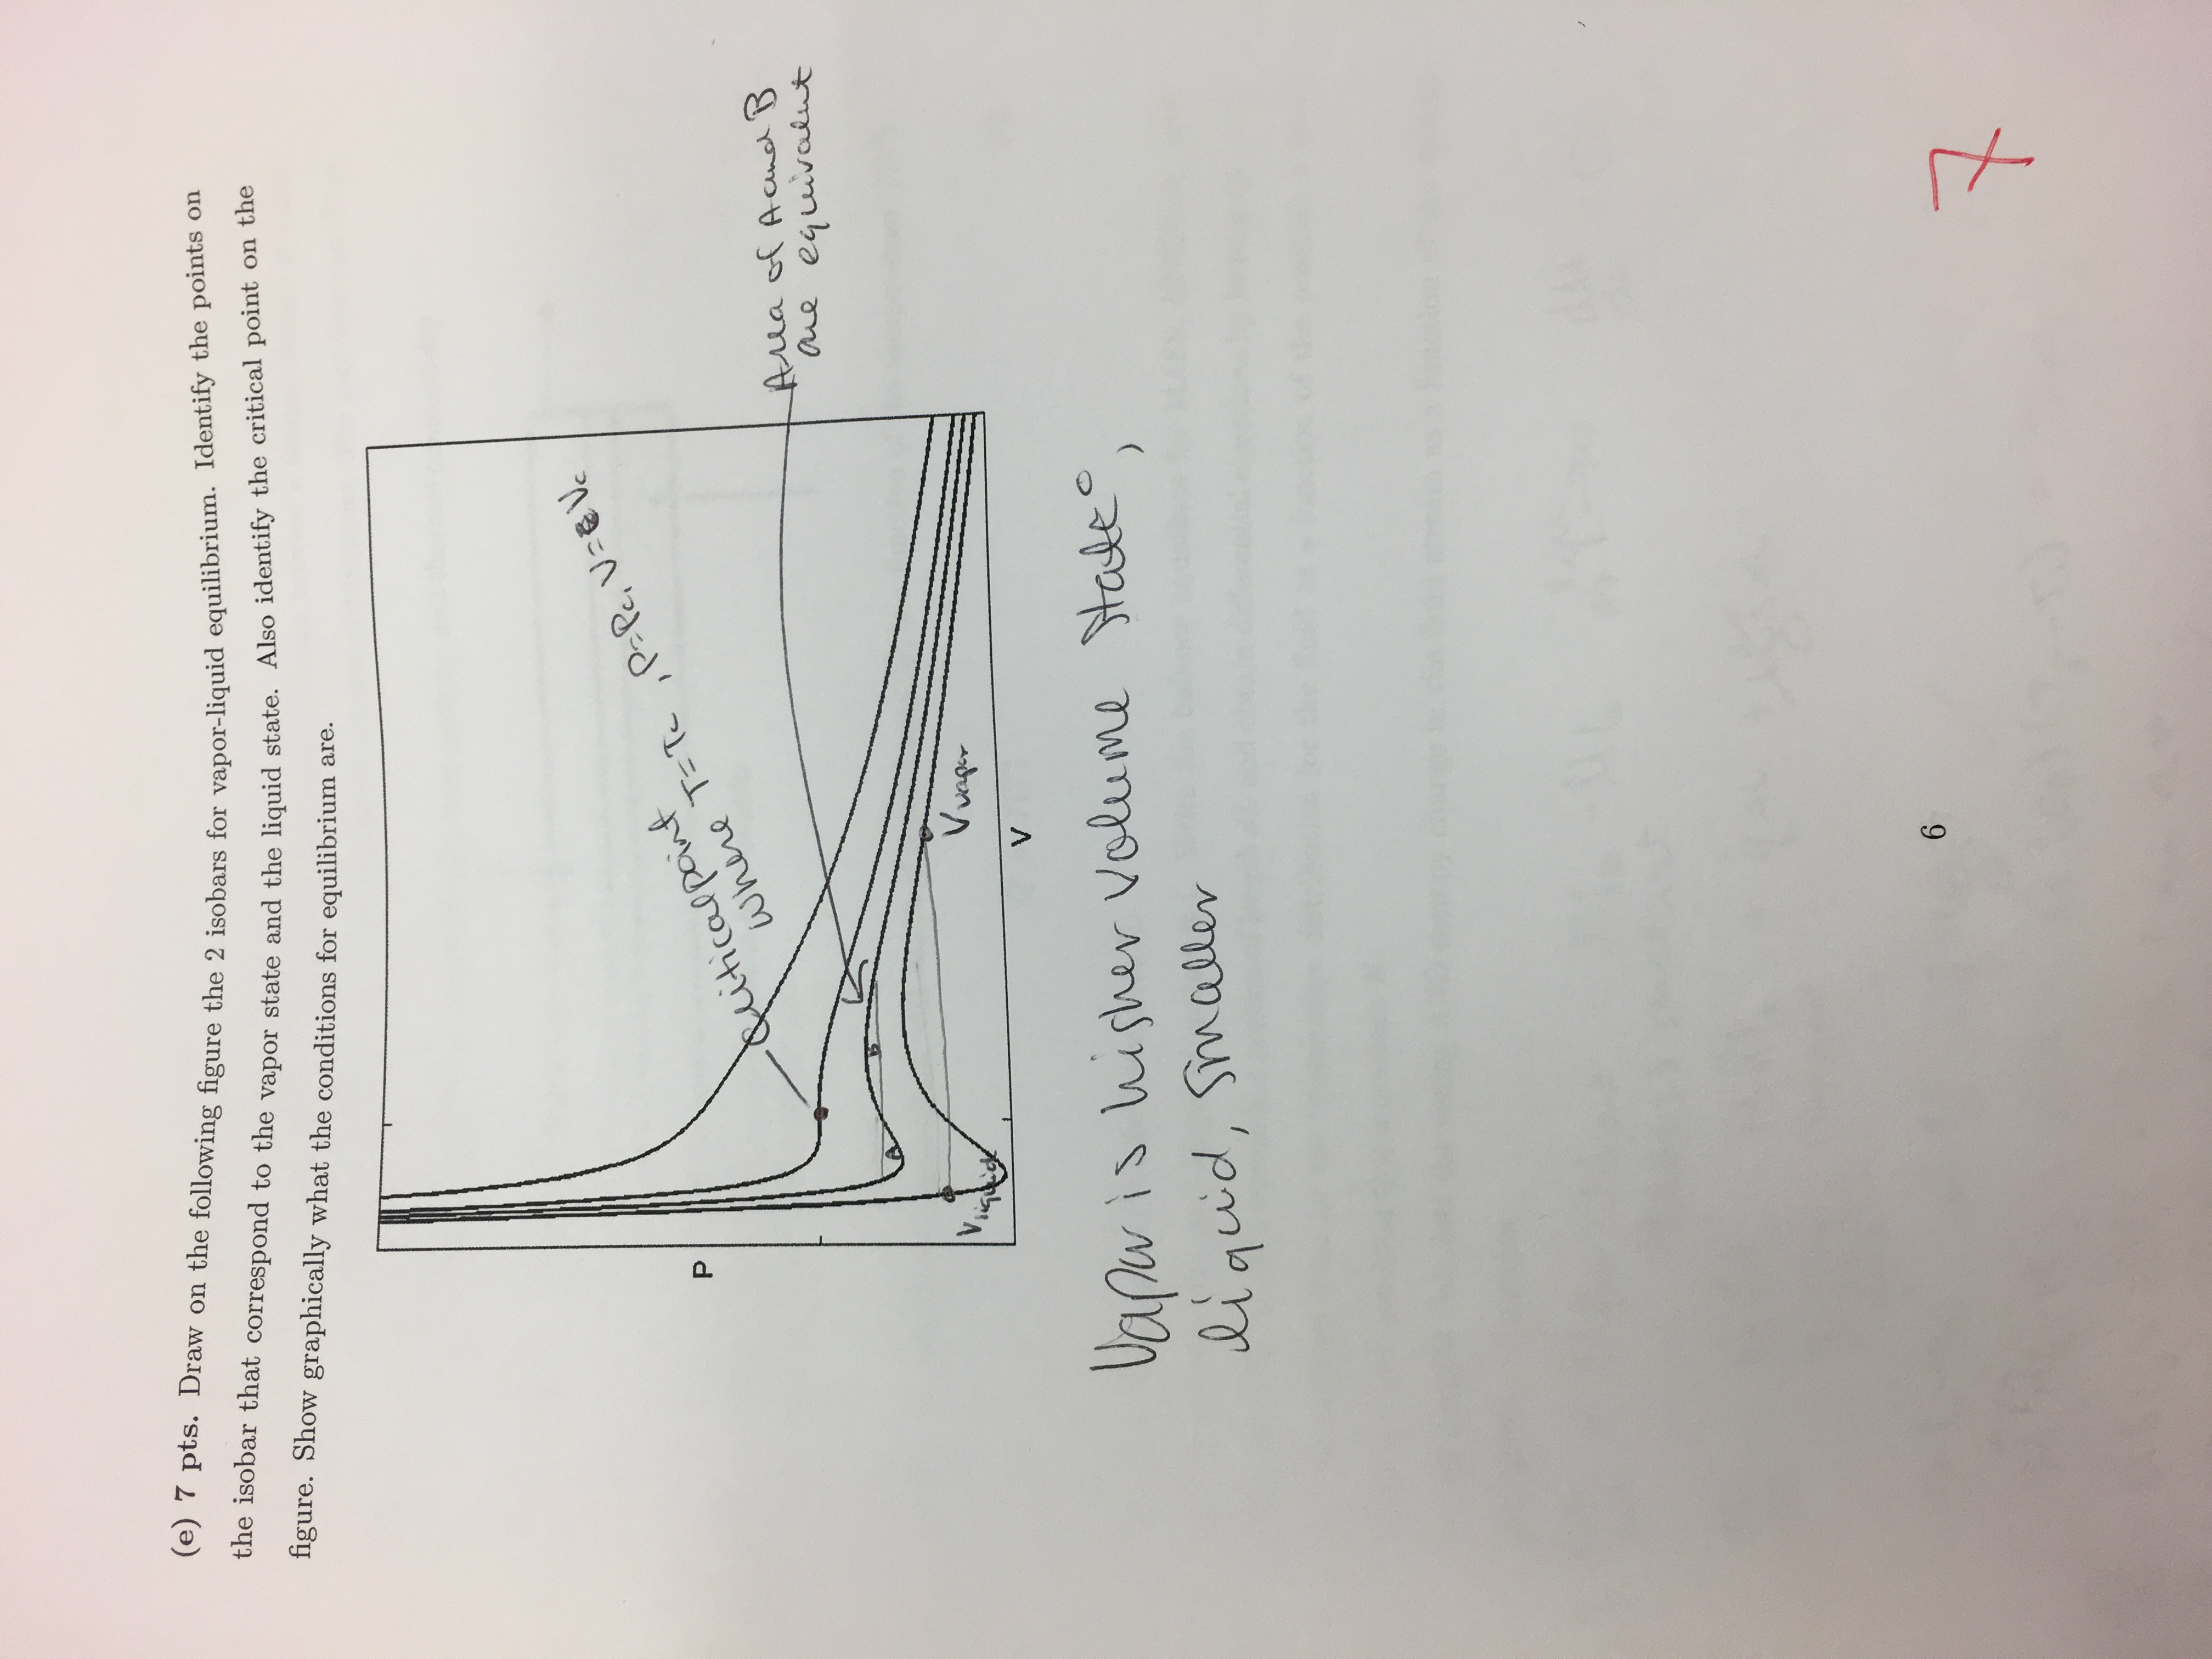 (e) 7 pts. Draw on the following figure the 2 isobars for vapor-liquid equilibrium. Identify the points on
the isobar that correspond to the vapor state and the liquid state. Also identify the critical point on the
figure. Show graphically what the conditions for equilibrium are.
critical point
where T=Tc, P=Pc, V=Vc
P
Area of A and B
are equivalent
B
A
Vvapor
Vliquid
V
Vapor is higher volume state,
liquid, smaller
6
7